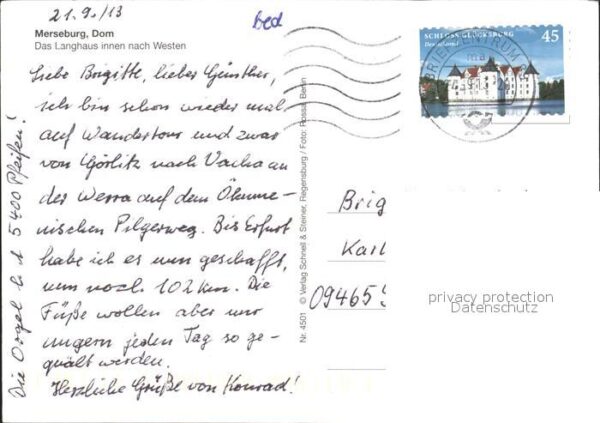 21.9./13
bed
Merseburg, Dom
Das Langhaus innen nach Westen
Liebe Brigitte, lieber Günther,
ich bin schon wieder mal
auf Wandertour und zwar
von Görlitz nach Vacha an
der Werra auf dem Ökume-
nischen Pilgerweg. Bis Erfurt
habe ich es nun geschafft,
nun noch 102 km. Die
Füße wollen aber nur
ungern jeden Tag so ge-
quält werden.
Herzliche Grüße von Konrad!
Die Orgel hat 5400 Pfeifen!
Nr. 4501 © Verlag Schnell & Steiner, Regensburg / Foto: Rossal, Berlin
SCHLOSS GLÜCKSBURG 45
Deutschland
BRIEFZENTRUM
Brig
Karl
09465
privacy protection
Datenschutz